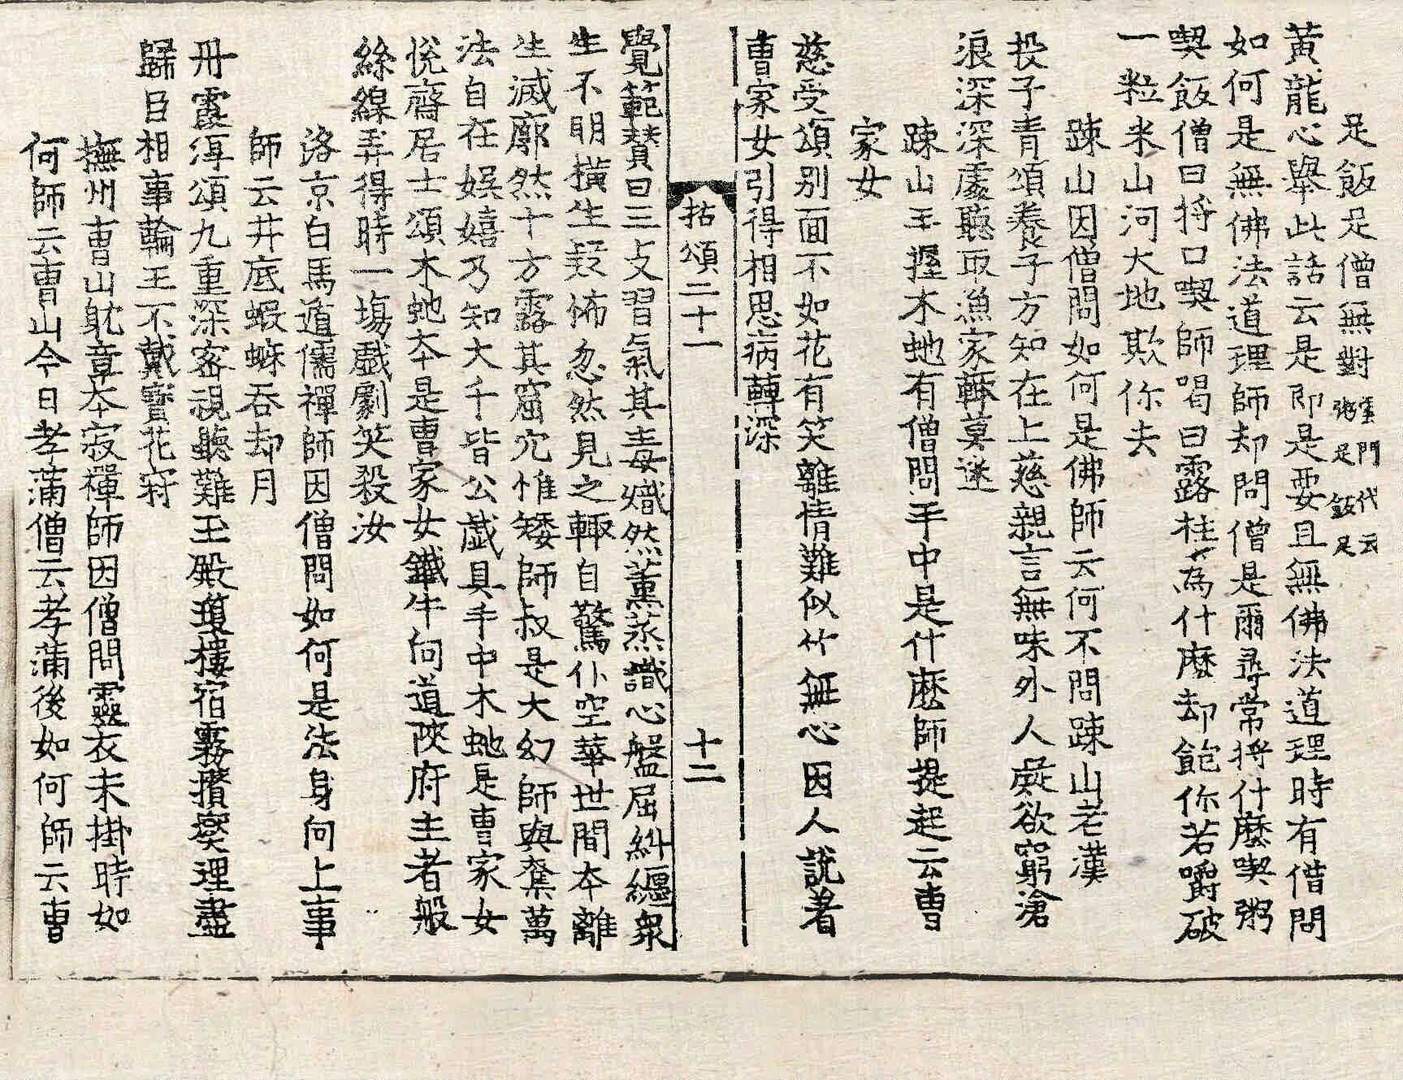 足飯足僧無對 雲門代云
粥足飯足
黃龍心舉此話云是即是要且無佛法道理時有僧問
如何是無佛法道理師却問僧是爾尋常將什麽喫粥
喫飯僧曰將口喫師喝曰露柱為什麽却飽你若嚼破
一粒米山河大地欺你去
踈山因僧問如何是佛師云何不問踈山老漢
投子青頌養子方知在上慈親言無味外人疑欲窮滄
浪深深處聽取漁家轉莫迷
踈山手握木虵有僧問手中是什麽師提起云曹
家女
慈受頌別面不如花有笑離情難似竹無心因人說著
曹家女引得相思病轉深
拈頌二十一 十二
覺範賛曰三攴習氣其毒熾然薰蒸識心盤屈糾纒衆
生不明橫生疑怖忽然見之輙自驚仆空華世間本離
生滅廓然十方露其窟穴惟矮師叔是大幻師與奪萬
法自在娛嬉乃知大千皆公戱具手中木虵是曹家女
悅齋居士頌木虵本是曹家女鐵牛向道陝府主者般
絲線弄得時一場戱劇笑殺汝
洛京白馬遁儒禪師因僧問如何是法身向上事
師云井底蝦蟆吞却月
丹霞淳頌九重深密視聽難玉殿瓊樓宿霧攢寢理盡
歸臣相事輪王不戴寶花冠
撫州曹山躭章本寂禪師因僧問靈衣未掛時如
何師云曹山今日孝蒲僧云孝蒲後如何師云曹